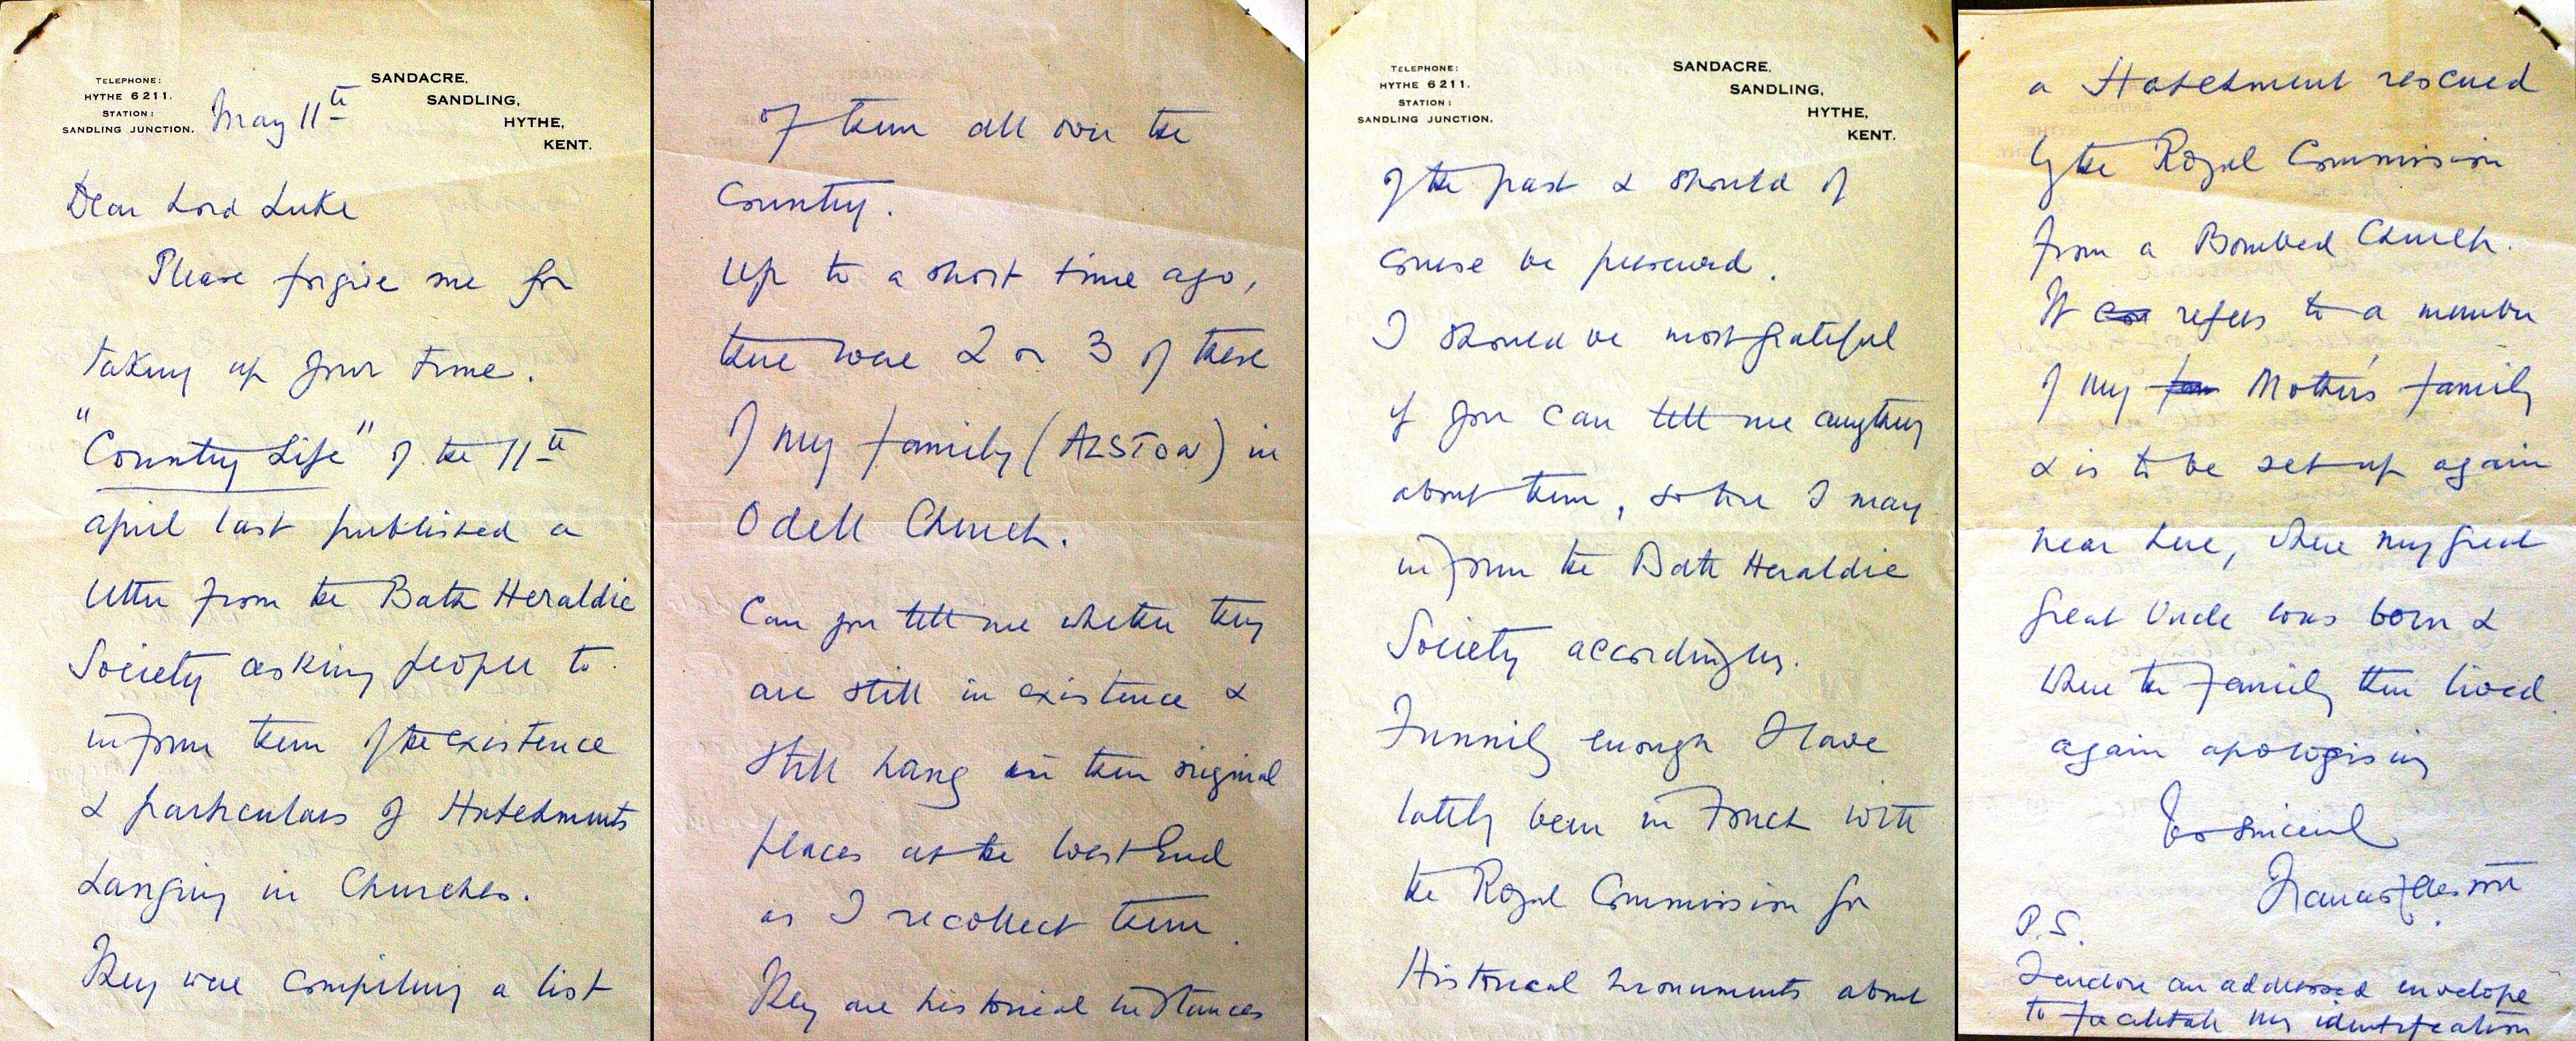 TELEPHONE:
HYTHE 6211.
STATION:
SANDLING JUNCTION.
SANDACRE,
SANDLING,
HYTHE,
KENT.
May 11th
Dear Lord Luke
Please forgive me for
taking up your time.
"Country Life" of the 11th
april last published a
letter from the Bath Heraldic
Society asking people to
inform them of the existence
& particulars of Hatchments
hanging in Churches.
They were compiling a list
of them all over the
Country.
Up to a short time ago,
there were 2 or 3 of these
of my family (ALSTON) in
Odell Church.
Can you tell me whether they
are still in existence &
still hang in their original
places at the West End
as I recollect them.
They are historical instances
TELEPHONE:
HYTHE 6211.
STATION:
SANDLING JUNCTION.
SANDACRE,
SANDLING,
HYTHE,
KENT.
of the past & should of
course be preserved.
I should be most grateful
if you can tell me anything
about them, so that I may
inform the Bath Heraldic
Society accordingly.
Funnily enough I have
lately been in Touch with
the Royal Commission for
Historical monuments about
a Hatchment rescued
by the Royal Commission
from a Bombed Church.
It refers to a member
of my Mother's family
& is to be set up again
near here, where my great
great Uncle was born &
where the Family then lived.
again apologising
Yrs sincerely
Francis Alston
P.S.
I enclose an addressed envelope
to facilitate my identification